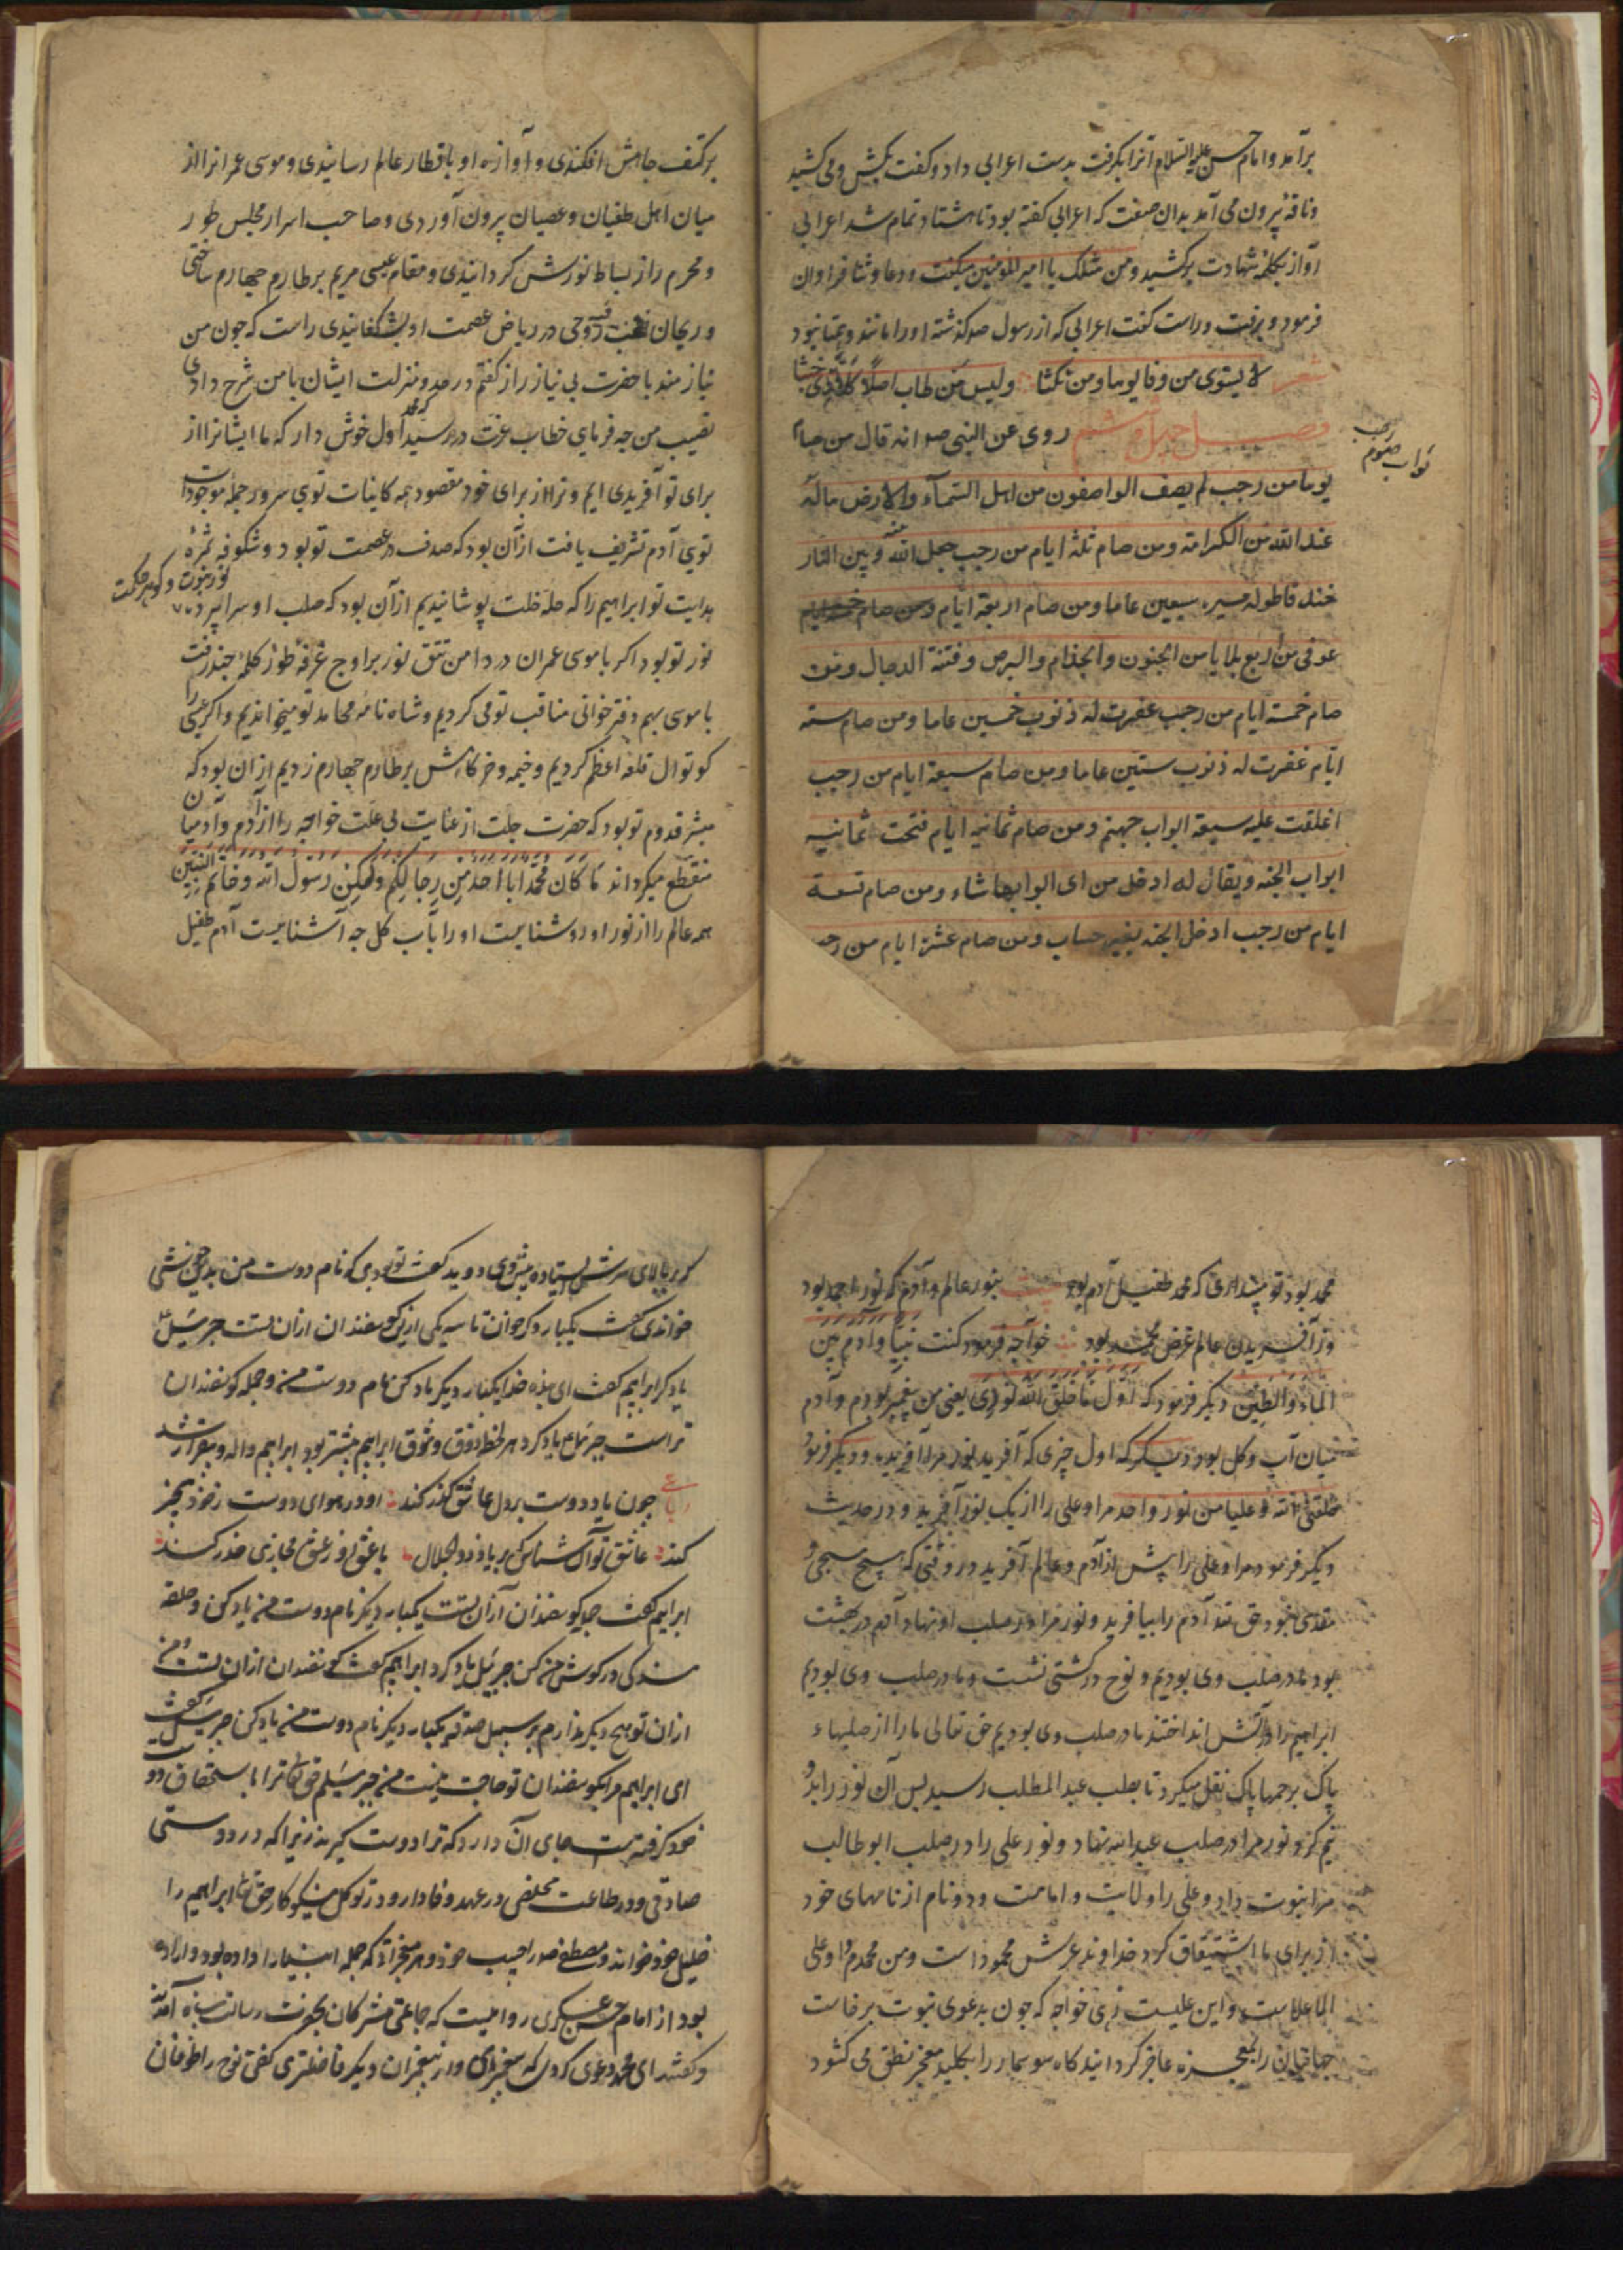 برآمد و امام حسن علیه السلام آنرا بکرفت بدست اعرابی داد و کفت بکش و می کشید
و ناقه بیرون می آمد بدان صفت که اعرابی کفته بود تا هشتاد تمام شد اعرابی
آواز بکلمه شهادت برکشید و من مثلک یا امیر المومنین میکفت و دعا و ثنا فراوان
فرمود و برفت و راست کفت اعرابی که از رسول صد کذشته او را مانند و همتا نبود
شعر لا یستوی من وفا یوما و من نکثا ولیس من طاب اصلا
فصل چهل و ششم روی عن النبی صد انه قال من صام
ثواب صوم رجب
یوما من رجب لم یصف الواصفون من اهل السمآء والارض ماله
عند الله من الکرامة ومن صام ثلثة ایام من رجب جعل الله بینه وبین النار
خندقا طوله مسیره سبعین عاما ومن صام اربعة ایام
عوفی من اربع بلایا من الجنون والجذام والبرص وفتنة الدجال ومن
صام خمسة ایام من رجب غفرت له ذنوب خمسین عاما ومن صام سته
ایام غفرت له ذنوب ستین عاما ومن صام سبعة ایام من رجب
اغلقت علیه سبعة ابواب جهنم ومن صام ثمانیه ایام فتحت ثمانیه
ابواب الجنه ویقال له ادخل من ای ابوابها شاء ومن صام تسعة
ایام من رجب ادخل الجنه بغیر حساب ومن صام عشرة ایام من رجب
بر کتف جاهش افکندی و آوازه او باقطار عالم رسانیدی و موسی عمرانرا از
میان اهل طغیان و عصیان بیرون آوردی و صاحب اسرار مجلس طور
و محرم راز بساط نورش کردانیدی و مقام عیسی مریم بر طارم چهارم ساختی
و ریحان روحی در ریاض عصمت او بشکفانیدی راست که چون من
نیازمند با حضرت بی نیاز راز کفتم در صد و منزلت ایشان با من شرح دادی
نصیب من چه فرمای خطاب عزت در رسید که محمد اول خوش دار که ما ایشانرا از
برای تو آفریدی ایم و ترا از برای خود مقصود همه کاینات توی سرور جمله موجودات
توی آدم تشریف یافت از آن بود که صدف در عصمت تو بود و شکوفه ثمره
هدایت تو ابراهیم را که حله خلت پوشانیدیم از آن بود که صلب او سراپرده
نور نبوت و کوهر حکمت
نور تو بود اکر با موسی عمران در دامن تتق نور بر اوج غرفه طور کلمه چند رفت
با موسی بهم دفتر خوانی مناقب تو می کردیم و شاه نامه محامد تو میخواندیم و اکر عیسی را
کوتوال قلعه اعظم کردیم و خیمه و خرکاهش بر طارم چهارم زدیم از ان بود که
مبشر قدوم تو بود که حضرت جلت از عنایت بی علت خواجه را از آدم و آدمیان
منقطع میکرداند مَا کَانَ مُحَمَّدٌ اَبَا اَحَدٍ مِن رِجَالِکُم وَلٰکِن رَسُولَ اللهِ وَخَاتَمَ النَّبِیِّین
همه عالم را از نور او روشنایست او را بآب کل چه آشنایست آدم طفیل
محمد بود تو پنداری که محمد طفیل آدم بود بنور عالم و آدم که نور احمد بود
وز آفریدن عالم غرض محمد بود خواجه فرمود کنت نبیا وآدم بین
الماء وَالطِّین دیکر فرمود که اول مَا خلق الله نوری یعنی من پیغمبر بودم و آدم
میان آب و کل بود دیکر که اول چیزی که آفرید نور مرا آفرید و دیکر فرمود
خلقنی الله و علیا من نور واحد مرا و علی را از یک نور آفرید و در حدیث
دیکر فرمود مرا و علی را پیش از آدم و عالم آفرید در وقتی که هیچ مسبحی و
مقدسی نبود حق تعه آدم را بیافرید و نور مرا در صلب او نهاد آدم در بهشت
بود ما در صلب وی بودیم و نوح در کشتی نشست و ما در صلب وی بودیم
ابراهیم را در آتش انداختند ما در صلب وی بودیم حق تعالی ما را از صلبهاء
پاک برحمها پاک نقل میکرد تا بصلب عبد المطلب رسید پس آن نور را بدو
نیم کرد نور مرا در صلب عبد الله نهاد و نور علی را در صلب ابو طالب
مرا نبوت داد و علی را ولایت و امامت و دو نام از نامهای خود
از برای ما اشتقاق کرد خداوند عرش محمود است و من محمدم و او علی
الاعلاست و این علیست زهی خواجه که چون بدعوی نبوت برخاست
جهانیان را بمعجزه عاجز کردانید کاه سوسمار را بکلید معجز نطق می کشود
بر بالای سرش ایستاده پیش وی دوید کفت تو بودی که نام دوست من بدین خوشی
خواندی کفت یکبار دیکر خوان تا سه یکی ازین کوسفندان از ان تست جبرئیل
یاد کرد ابراهیم کفت ای بنده خدا یکبار دیکر یاد کن نام دوست من و جمله کوسفندان
تراست جبرئیل یاد کرد هر لحظه ذوق و شوق ابراهیم بیشتر بود ابراهیم واله و بیقرار شد
رباعی چون یاد دوست بر دل عاشق کذر کند او در هوای دوست ز خود بیخبر
کند عاشق تو آن شناس که بر یاد ذو الجلال با عشق او ز عشق مجازی حذر کند
ابراهیم کفت جمله کوسفندان از آن تست یکبار دیکر نام دوست من یاد کن و حلقه
بندکی در کوش من کن جبرئیل یاد کرد ابراهیم کفت کوسفندان از ان تست و من
از ان تو هیچ دیکر ندارم بر سبیل صدقه یکبار دیکر نام دوست من یاد کن جبرئیل کفت
ای ابراهیم مرا بکوسفندان تو حاجت نیست من جبرئیلم حق تعا ترا باستحقاق دوست
خود کرفته است جای آن دارد که ترا دوست کیرند زیرا که در دوستی
صادقی و در طاعت مخلصی در عهد وفادار و در توکل نیکوکار حق تعا ابراهیم را
خلیل خود خواند و مصطفی صد را حبیب خود و هر معجزاتی که جمله انبیا را داده بود او را داده
بود از امام حسن عسکری روایتست که جماعتی مشرکان بحضرت رسالت پناه آمدند
و کفتند ای محمد دعوی کردی که پیغمبرم و از پیغمبران دیکر فاضلتری کفتی نوح را طوفان